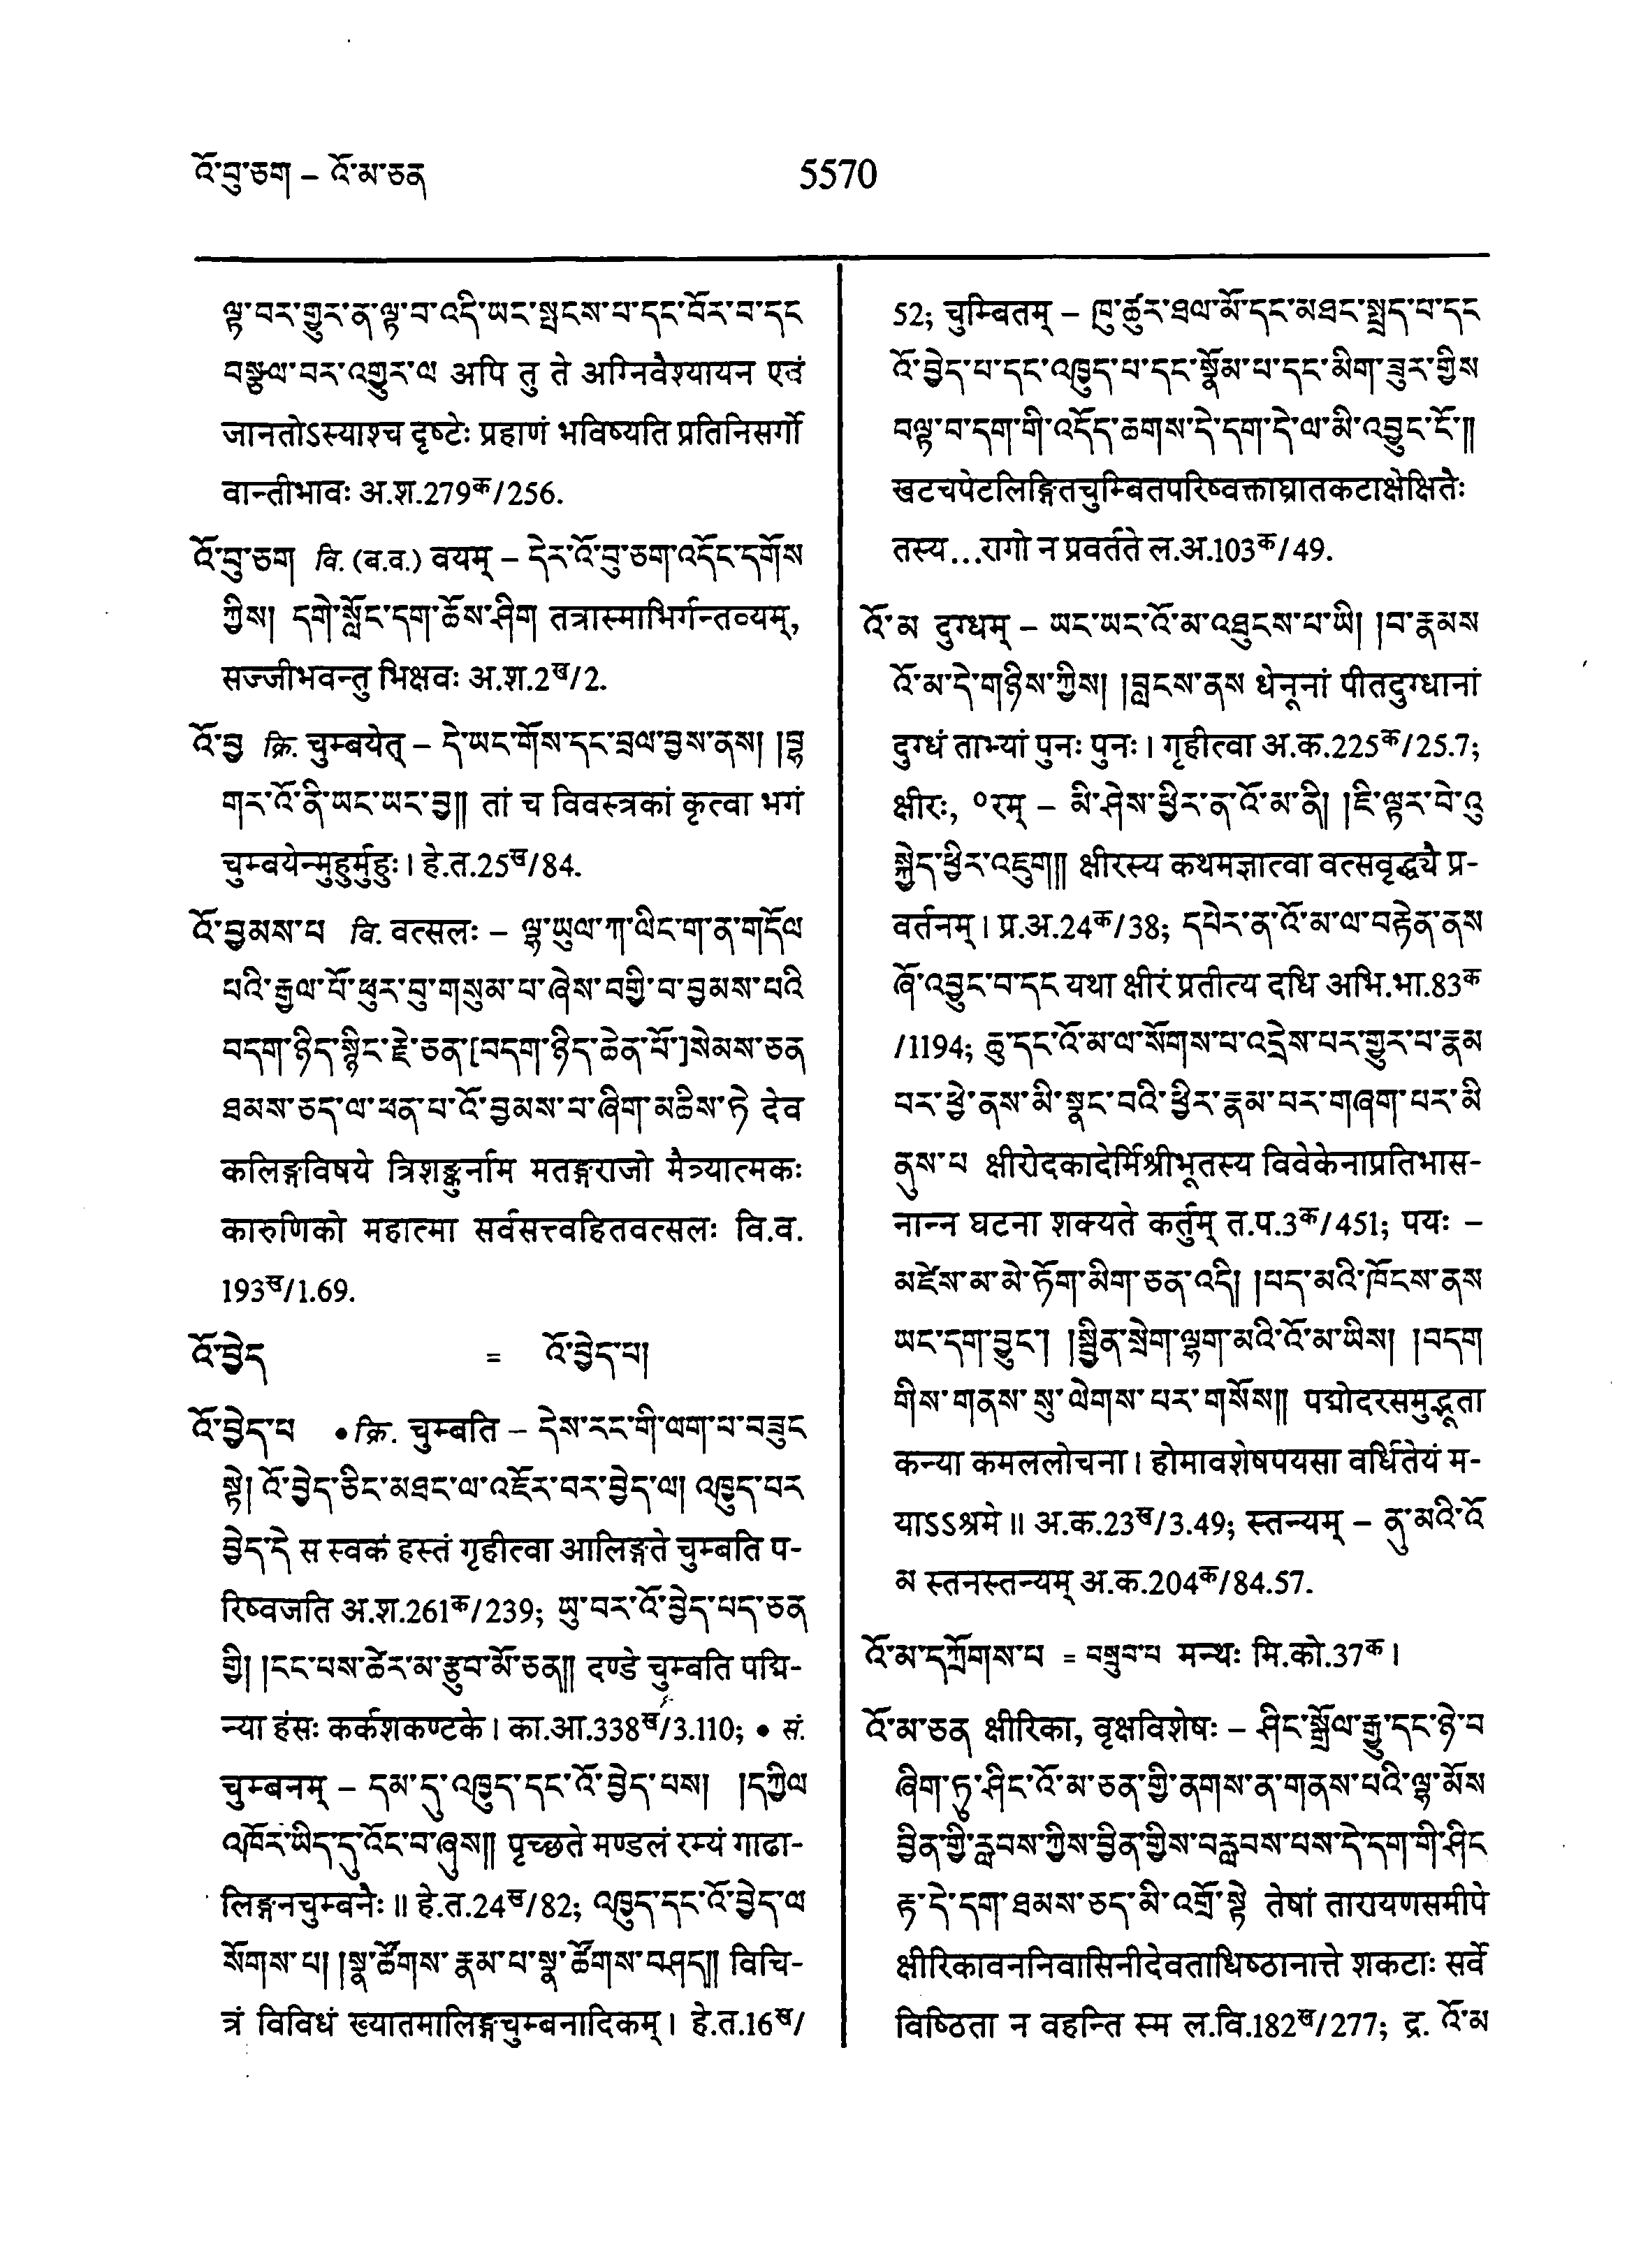 འོ་བུ་ཅག – འོ་མ་ཅན
5570
ལྟ་བར་གྱུར་ན་ལྟ་བ་འདི་ཡང་སྤངས་པ་དང་བོར་བ་དང
བསྩལ་བར་འགྱུར་ལ अपि तु ते अग्निवैश्यायन एवं
जानतोऽस्याश्च दृष्टेः प्रहाणं भविष्यति प्रतिनिसर्गो
वान्तीभावः अ.श.279क/256.
འོ་བུ་ཅག वि. (ब.व.) वयम् – དེར་འོ་བུ་ཅག་འདོང་དགོས
ཀྱིས། དགེ་སློང་དག་ཆོས་ཤིག तत्रास्माभिर्गन्तव्यम्,
सज्जीभवन्तु भिक्षवः अ.श.2ख/2.
འོ་བྱ क्रि. चुम्बयेत् – དེ་ཡང་གོས་དང་བྲལ་བྱས་ནས། །བྷ
གར་འོ་ནི་ཡང་ཡང་བྱ།། तां च विवस्त्रकां कृत्वा भगं
चुम्बयेन्मुहुर्मुहुः । हे.त.25ख/84.
འོ་བྱམས་པ वि. वत्सलः – ལྷ་ཡུལ་ཀ་ལིང་ག་ན་གདོལ
པའི་རྒྱལ་པོ་ཕུར་བུ་གསུམ་པ་ཞེས་བགྱི་བ་བྱམས་པའི
བདག་ཉིད་སྙིང་རྗེ་ཅན་[བདག་ཉིད་ཆེན་པོ་]སེམས་ཅན
ཐམས་ཅད་ལ་ཕན་པ་འོ་བྱམས་པ་ཞིག་མཆིས་ཏེ देव
कलिङ्गविषये त्रिशङ्कुर्नाम मतङ्गराजो मैत्र्यात्मकः
कारुणिको महात्मा सर्वसत्त्वहितवत्सलः वि.व.
193ख/1.69.
འོ་བྱེད = འོ་བྱེད་པ།
འོ་བྱེད་པ • क्रि. चुम्बति – དེས་རང་གི་ལག་པ་བཟུང
སྟེ། འོ་བྱེད་ཅིང་མཐང་ལ་འཇོར་བར་བྱེད་ལ། འཁྱུད་པར
བྱེད་དེ स स्वकं हस्तं गृहीत्वा आलिङ्गते चुम्बति प-
रिष्वजति अ.श.261क/239; ཡུ་བར་འོ་བྱེད་པད་ཅན
གྱི། །ངང་པས་ཚེར་མ་རྩུབ་མོ་ཅན།། दण्डे चुम्बति पद्मि-
न्या हंसः कर्कशकण्टके । का.आ.338ख/3.110; • सं.
चुम्बनम् – དམ་དུ་འཁྱུད་དང་འོ་བྱེད་པས། །དཀྱིལ
འཁོར་ཡིད་དུ་འོང་བ་ཞུས།། पृच्छते मण्डलं रम्यं गाढा-
लिङ्गनचुम्बनैः ॥ हे.त.24ख/82; འཁྱུད་དང་འོ་བྱེད་ལ
སོགས་པ། །སྣ་ཚོགས་རྣམ་པ་སྣ་ཚོགས་བཤད།། विचि-
त्रं विविधं ख्यातमालिङ्गचुम्बनादिकम् । हे.त.16ख/
52; चुम्बितम् – ཁུ་ཚུར་ཐལ་མོ་དང་མཐང་སྤྲད་པ་དང
འོ་བྱེད་པ་དང་འཁྱུད་པ་དང་སྣོམ་པ་དང་མིག་ཟུར་གྱིས
བལྟ་བ་དག་གི་འདོད་ཆགས་དེ་དག་དེ་ལ་མི་འབྱུང་ངོ་།།
खटचपेटलिङ्गितचुम्बितपरिष्वक्ताघ्रातकटाक्षेक्षितैः
तस्य...रागो न प्रवर्तते ल.अ.103क/49.
འོ་མ दुग्धम् – ཡང་ཡང་འོ་མ་འཐུངས་པ་ཡི། །བ་རྣམས
འོ་མ་དེ་གཉིས་ཀྱིས། །བླངས་ནས धेनूनां पीतदुग्धानां
दुग्धं ताभ्यां पुनः पुनः । गृहीत्वा अ.क.225क/25.7;
क्षीरः, ०रम् – མི་ཤེས་ཕྱིར་ན་འོ་མ་ནི། །ཇི་ལྟར་བེ་འུ
སྐྱེད་ཕྱིར་འཇུག།། क्षीरस्य कथमज्ञात्वा वत्सवृद्ध्यै प्र-
वर्तनम् । प्र.अ.24क/38; དཔེར་ན་འོ་མ་ལ་བརྟེན་ནས
ཞོ་འབྱུང་བ་དང यथा क्षीरं प्रतीत्य दधि अभि.भा.83क
/1194; ཆུ་དང་འོ་མ་ལ་སོགས་པ་འདྲེས་པར་གྱུར་པ་རྣམ
པར་ཕྱེ་ནས་མི་སྣང་བའི་ཕྱིར་རྣམ་པར་གཞག་པར་མི
ནུས་པ क्षीरोदकादेर्मिश्रीभूतस्य विवेकेनाप्रतिभास-
नान्न घटना शक्यते कर्तुम् त.प.3क/451; पयः –
མཛེས་མ་མེ་ཏོག་མིག་ཅན་འདི། །པད་མའི་ཁོངས་ནས
ཡང་དག་བྱུང་། །སྦྱིན་སྲེག་ལྷག་མའི་འོ་མ་ཡིས། །བདག
གིས་གནས་སུ་ལེགས་པར་གསོས།། पद्मोदरसमुद्भूता
कन्या कमललोचना । होमावशेषपयसा वर्धितेयं म-
याऽऽश्रमे ॥ अ.क.23ख/3.49; स्तन्यम् – ནུ་མའི་འོ
མ स्तनस्तन्यम् अ.क.204क/84.57.
འོ་མ་དཀྲོགས་པ = བསྲུབ་པ मन्थः मि.को.37क ।
འོ་མ་ཅན क्षीरिका, वृक्षविशेषः – ཤིང་སྒྲོལ་རྒྱུ་དང་ཉེ་བ
ཞིག་ཏུ་ཤིང་འོ་མ་ཅན་གྱི་ནགས་ན་གནས་པའི་ལྷ་མོས
བྱིན་གྱི་རླབས་ཀྱིས་བྱིན་གྱིས་བརླབས་པས་དེ་དག་གི་ཤིང
རྟ་དེ་དག་ཐམས་ཅད་མི་འགྲོ་སྟེ तेषां तारायणसमीपे
क्षीरिकावननिवासिनीदेवताधिष्ठानात्ते शकटाः सर्वे
विष्ठिता न वहन्ति स्म ल.वि.182ख/277; द्र. འོ་མ